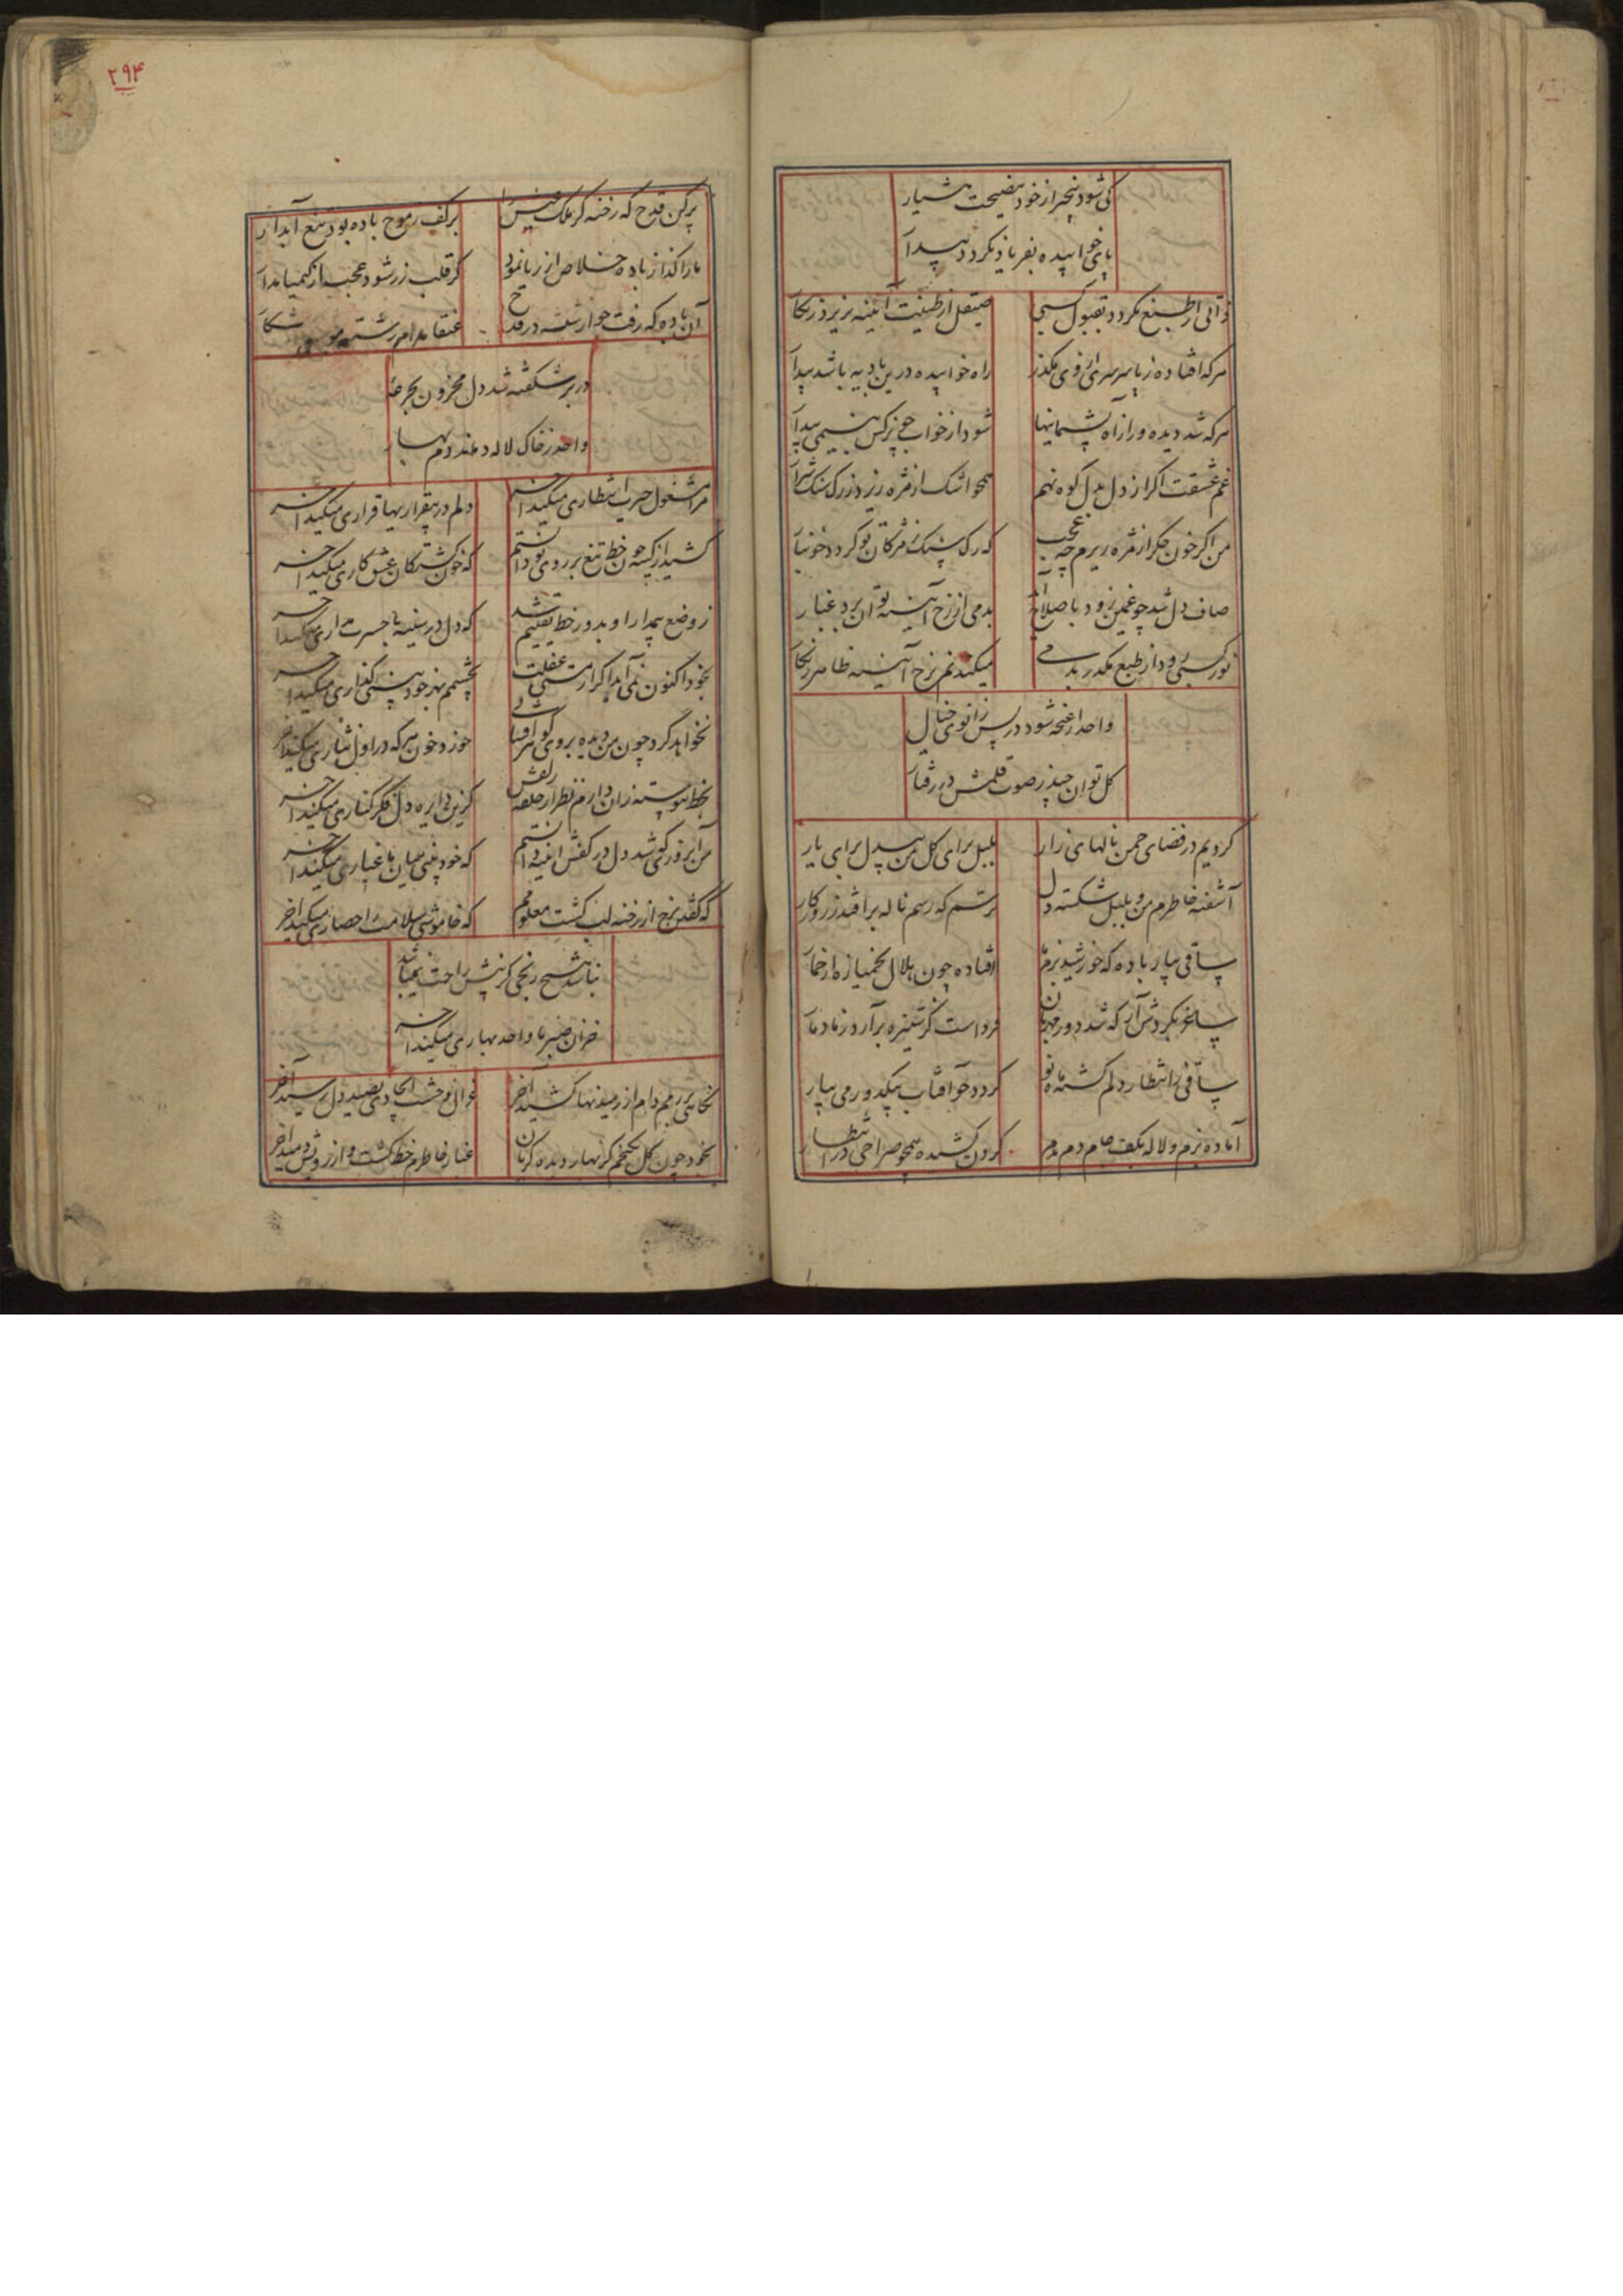 کی شود بیخبر از خود بنصیحت هشیار
پای خوابیده بفریاد نکردد بیدار
ذاتی از طبع نکردد بقبول کسبی
صیقل از طینت آیینه نریزد زنکار
هر که افتاده ز پا سرسری از وی مکذر
راه خوابیده درین بادیه باشد بیدار
هر که شد دیده ور از راه پشیمانیها
شود از خواب چو نرکس بنسیمی بیدار
غم عشقت اکر از دل بدل کوه نهم
همچو اشک از مژه ریزد ز رک سنک شرار
من اکر خون جکر از مژه ریزم چه عجب
که رک سنک ز مژکان تو کردد خونبار
صاف دل شد چو غمین زود باصلاح
بدمی از رخ آیینه توان برد غبار
نور کسبی رود از طبع مکدر بدمی
میکند نم برخ آیینه ظاهر زنکار
واحد از غنچه شود در پس زانوی خیال
کل توان چید ز صوت قلمش در رفتار
کردیم در فضای چمن نالهای زار
بلبل برای کل من بیدل برای یار
آشفته خاطرم من و بلبل شکسته دل
ترسم که رسم ناله برافتد ز روزکار
ساقی بیار باده که خورشید بزم
افتاده چون هلال بخمیازه از خمار
ساغر بکردش آر که شد دور مهربان
فرداست کز ستیزه برآرد ز ما دمار
ساقی ز انتظار دلم کشته ماه نو
کردد چو آفتاب بیکدور می بیار
آماده بزم و لاله بکف جام دم بدم
کردن کشیده همچو صراحی در انتظار
۲۹۴
پر کن قدح که رخنه کر ملک
بر کف ز موج باده بود تیغ آبدار
ما را کداز باده خلاص از ریا نمود
کر قلب زر شود عجب از کیمیا مدار
آن باده که رفت چو از شیشه در قدح
عنقا مدام رشته موجش شکار
در بر شکفته شد دل محزون بجرعه
واحد ز خاک لاله دماند دم بهار
مرا مشغول حسرت انتظاری میکند آخر
دلم در بیقراریها قراری میکند آخر
کشید از کینه چون خط تیغ بر روی تو دانستم
که خون کشتکان عشق کاری میکند آخر
ز وضع بیمدارا و بدور خط یقینم شد
که دل در سینه با حسرت مداری میکند آخر
بخود اکنون نمی آید اکر از مستی غفلت
بچشمم نیز جود نیستی کذاری میکند آخر
نخواهد کرد چون من دیده بر وی کوهر افشانی
خورد خون هر که در اول نثاری میکند آخر
بخط پیوسته زان دارم نظر از حلقه زلفش
کزین دایره دل فکر کناری میکند آخر
من آنروزی که شد دل در کفش افتاد دانستم
که خودبینی میان ما غباری میکند آخر
که نقد رنج از رخنه لب کشت معلومم
که خاموشی سلامت را حصاری میکند آخر
نباشد هیچ رنجی کز پیش راحت نمیباشد
خزان صبر ما واحد بهاری میکند آخر
نکاهی بر رمم دام از رمیدنها کشید آخر
غزال وحشت ایجادی بصید دل رسید آخر
بخود چون کل نخندم کز بهار دیده کریان
غبار خاطرم خط کشت و از رویش دمید آخر